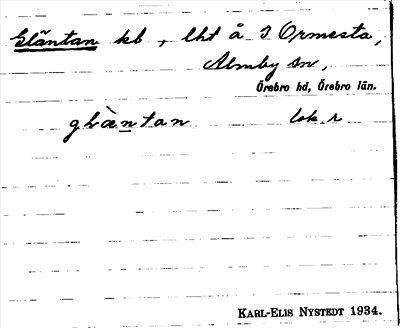 Gläntan kb, lht å 3 Ormesta,
Almby sn,
Örebro hd, Örebro län.
glæ̀ntan lok. r.
KARL-ELIS NYSTEDT 1934.